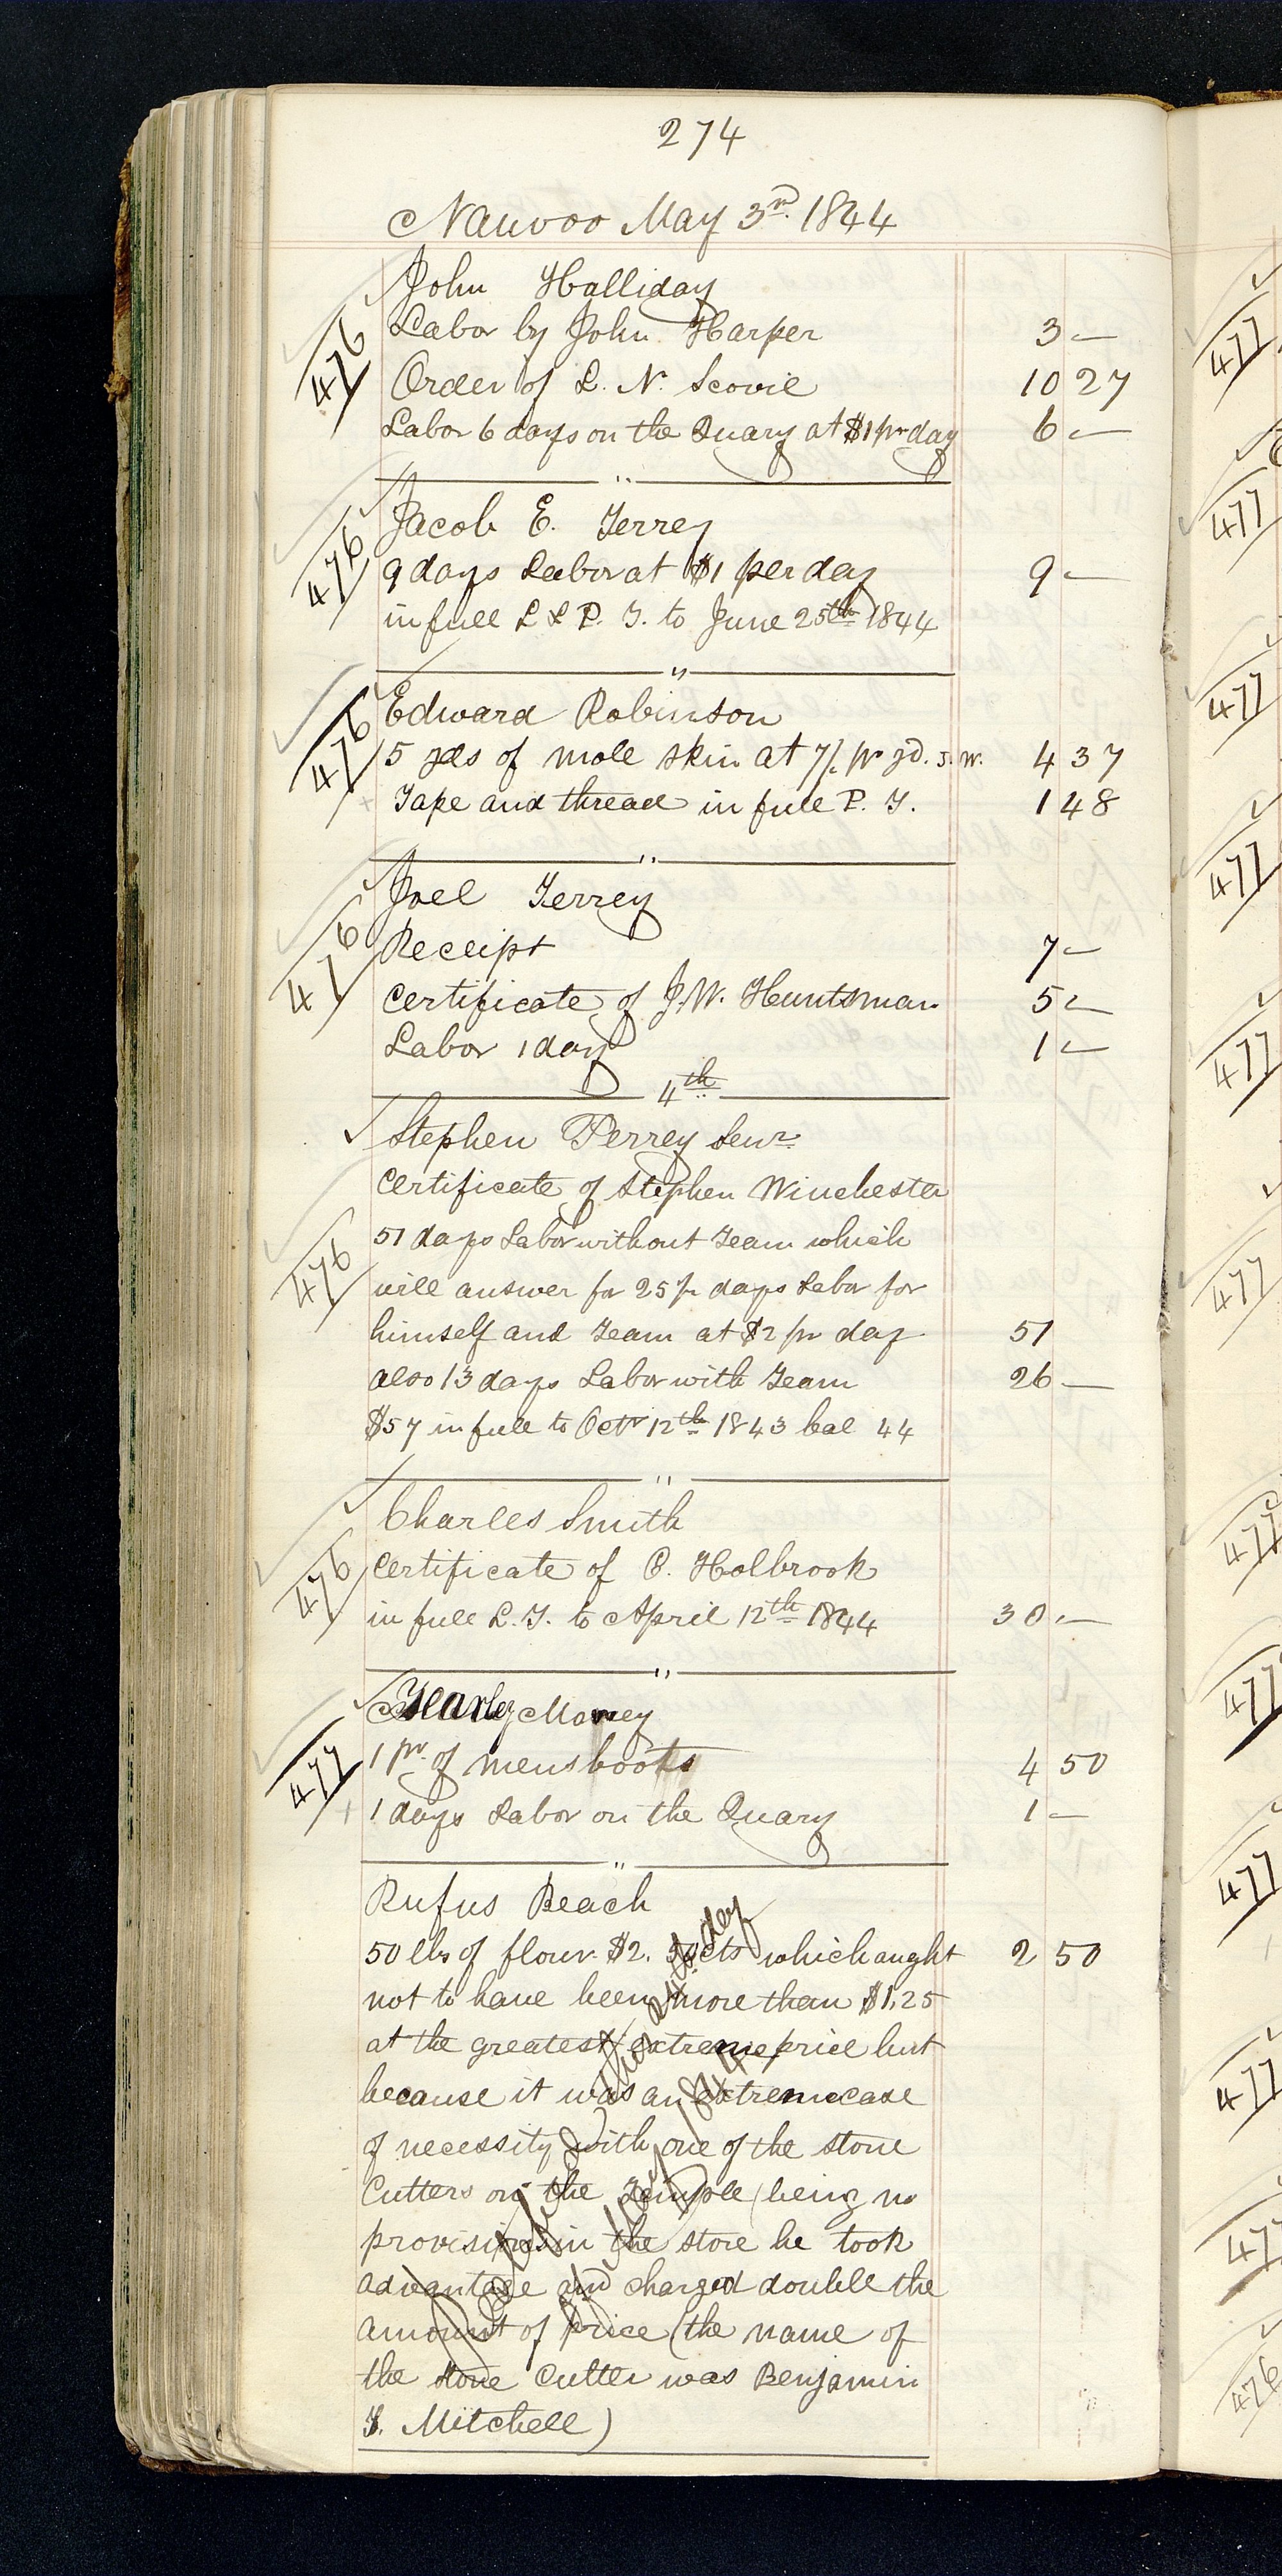 274
Nauvoo May 3rd. 1844
John Halliday
Labor by John Harper 3 —
476
Order of L. N. Scovil 10 27
Labor 6 days on the Quary at $1 pr day 6 —
"
Jacob E. Terrey
476
9 days Labor at $1 per day 9 —
in full L & P. T. to June 25th 1844
"
Edward Robinson
476
5 yds of mole skin at 7/. pr yd. s. w. 4 37
Tape and thread in full P. T. 1 48
"
Joel Terrey
476
Receipt 7 —
Certificate of J. W. Huntsman 5 —
Labor 1 day 1 —
4th
Stephen Perrey Senr.
Certificate of Stephen Winchester
51 days Labor without Team which
476
will answer for 25½ days Labor for
himself and Team at $2 pr day 51
also 13 days Labor with Team 26 —
$57 in full to Octr 12th 1843 bal 44
"
Charles Smith
476
Certificate of C. Holbrook
in full L. T. to April 12th 1844 30 —
"
Morey
477
1 pr. of mens boots 4 50
1 days Labor on the Quary 1 —
"
Rufus Beach
50 lbs of flour $2. 50 cts which aught 2 50
not to have been more than $1,25
at the greatest extreme price but
because it was an extreme case
of necessity with one of the stone
Cutters on the Temple (being no
provisions in the store he took
advantage and charged double the
amount of price (the name of
the stone Cutter was Benjamin
T. Mitchell)
477
477
477
477
477
477
477
477
477
477
477
476